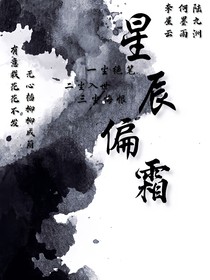 陆九洲
何墨雨
李星云
星辰偏霜
一尘绝笔
二尘入世
三尘
无心插柳柳成荫
有意栽花花不发